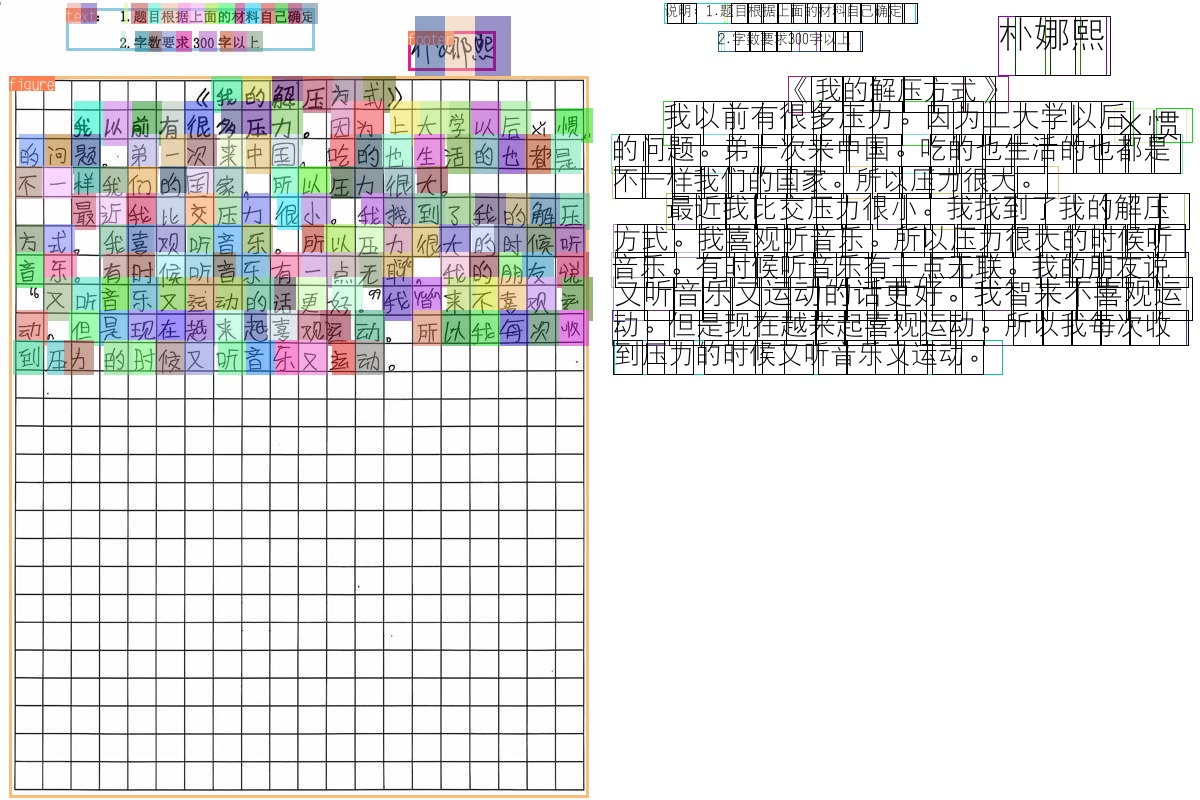 说明：1.题目根据上面的材料自己确定
2.字数要求300字以上
朴娜熙
《我的解压方式》
我以前有很多压力。因为上大学以后义惯
的问题。弟一次来中国。吃的也生活的也都是
不一样我们的国家。所以压力很大。
最近我比交压力很小。我找到了我的解压
方式。我喜观听音乐。所以压力很大的时候听
音乐。有时候听音乐有一点无聊。我的朋友说
“又听音乐又运动的话更好。”我 来不喜观运
动。但是现在越来越喜观运动。所以我每次收
到压力的时候又听音乐又运动。
text： 1.题目根据上面的材料自己确定
2.字数要求 300 字以上
footer
figure
说明：1.题目根据上面的材料自己确定
2.字数要求300字以上
朴娜熙
《我的解压方式》
我以前有很多压力。因为上大学以后义惯
的问题。弟一次来中国。吃的也生活的也都是
不一样我们的国家。所以压力很大。
最近我比交压力很小。我找到了我的解压
方式。我喜观听音乐。所以压力很大的时候听
音乐。有时候听音乐有一点无联。我的朋友说
又听音乐又运动的话更好。我智来不喜观运
动。但是现在越来起喜观运动。所以我每次收
到压力的时候又听音乐义运动。